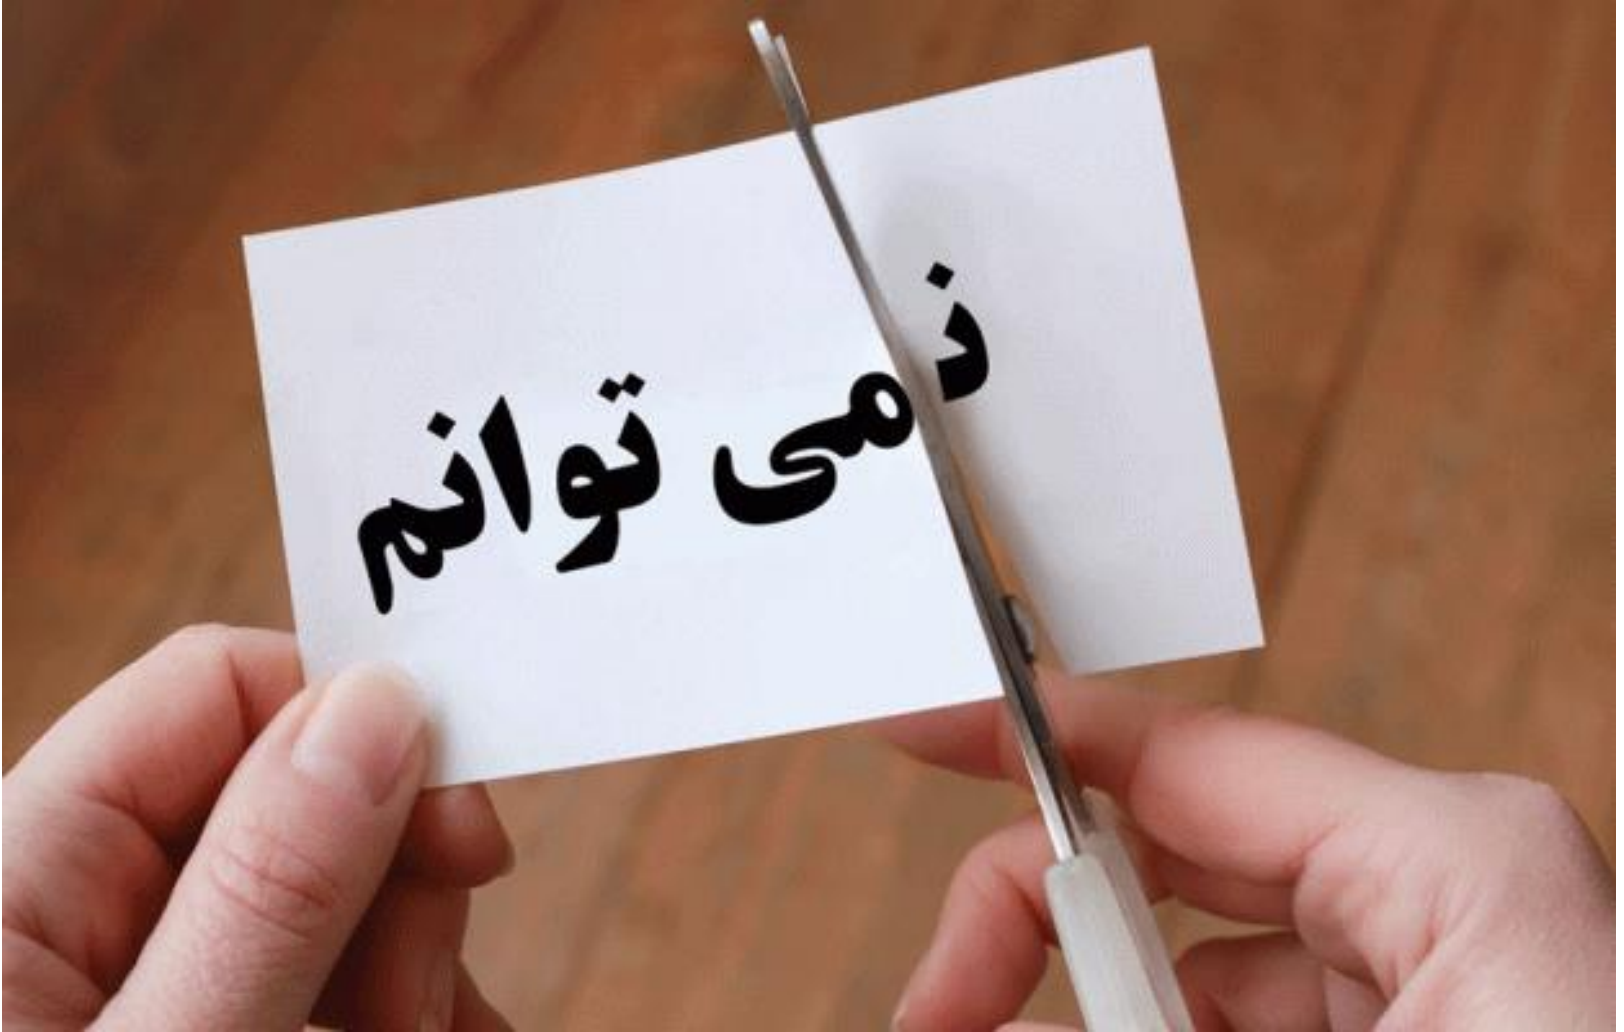 نمی توانم